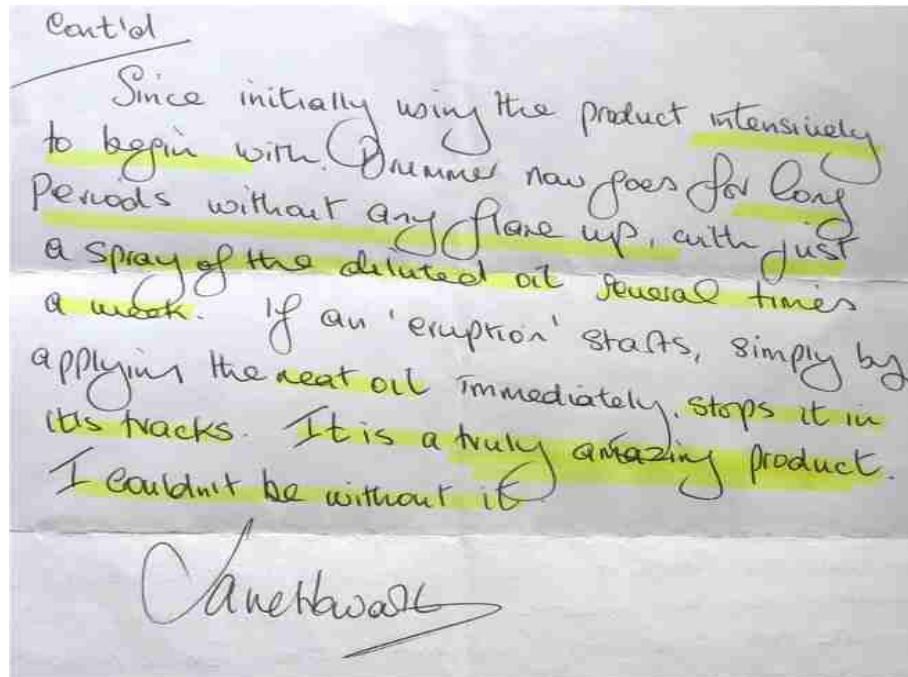 Cont'd
Since initially using the product intensively
to begin with. Drummer now goes for long
periods without any flare up, with just
a spray of the diluted oil several times
a week. If an 'eruption' starts, simply by
applying the neat oil immediately, stops it in
it's tracks. It is a truly amazing product.
I couldn't be without it
Jane